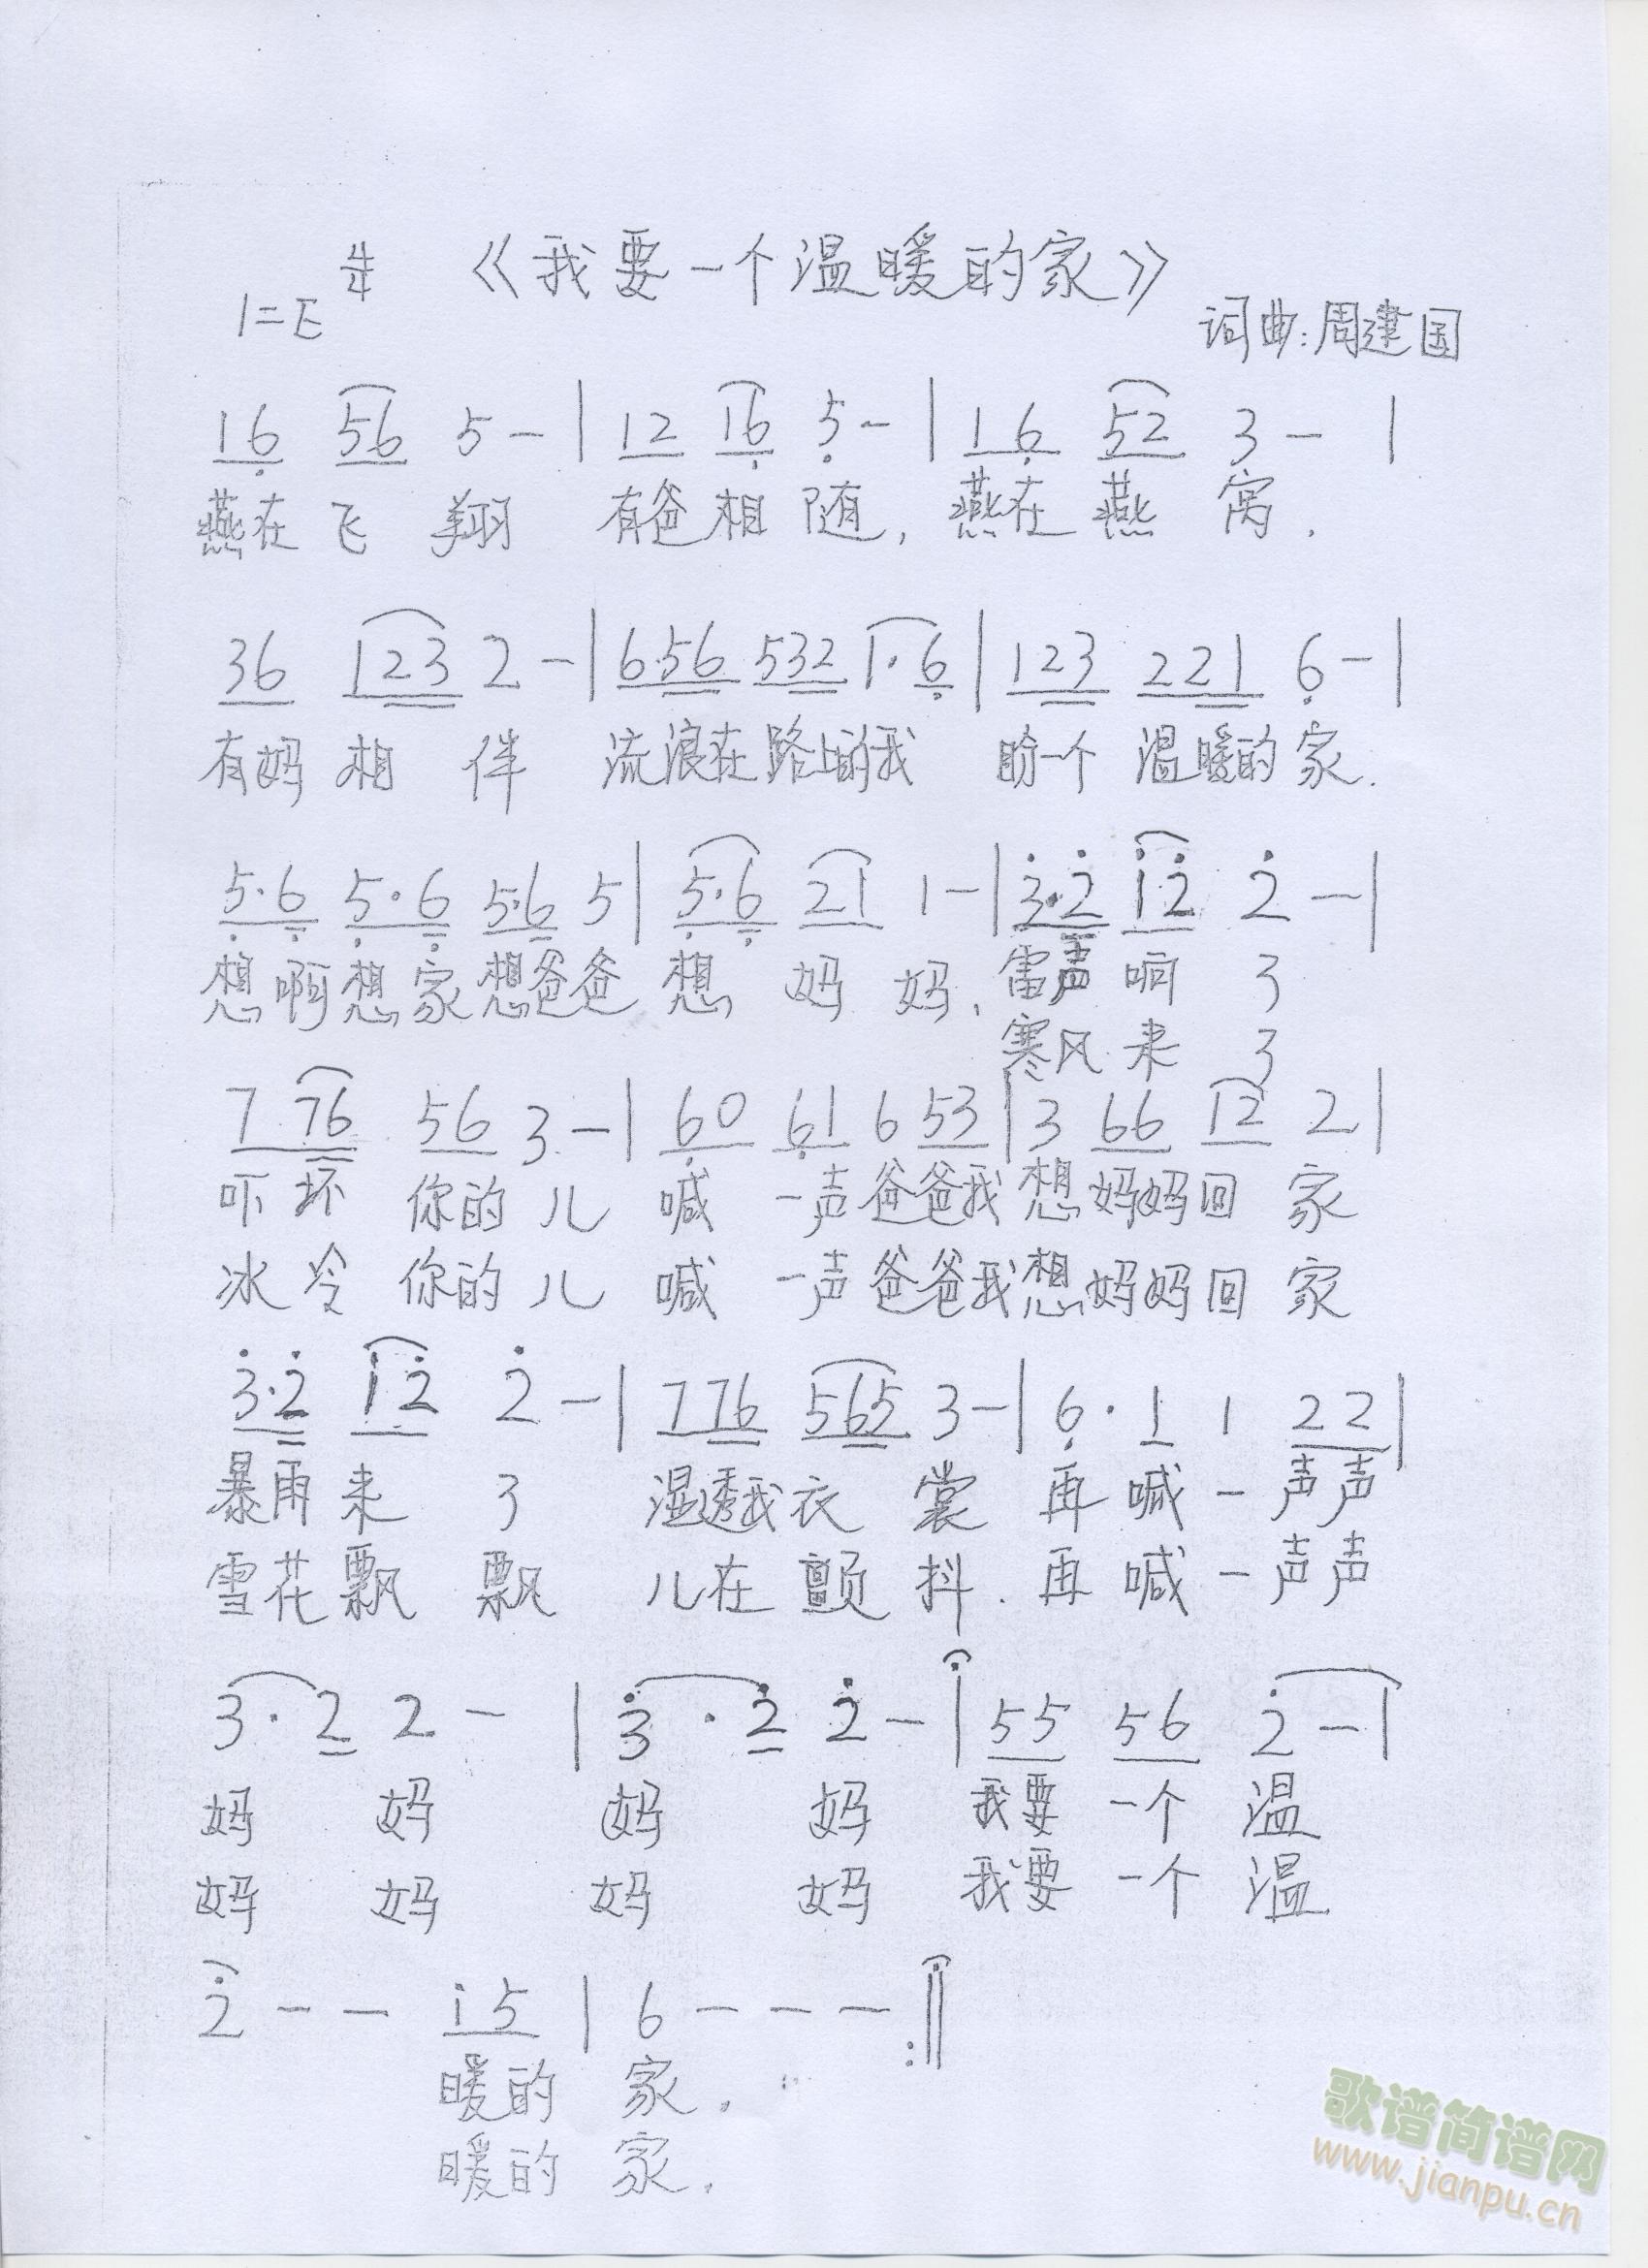 《我要一个温暖的家》
1=E 4/4
词曲:周建国
16 56 5 - | 12 16 5 - | 16 52 3 - |
燕在飞翔 有爸相随, 燕在燕窝.
36 123 2 - | 6·56 532 1·6 | 123 221 6 - |
有妈相伴 流浪在路上的我 盼一个温暖的家.
5·6 5·6 5·6 5 | 5·6 21 1 - | 3·2 12 2 - |
想啊想家想爸爸 想妈妈, 雷声响了
寒风来了
7 76 56 3 - | 60 61 6 53 | 3 66 12 2 |
吓坏你的儿 喊一声爸爸我想妈妈回家
冰冷你的儿 喊一声爸爸我想妈妈回家
3·2 12 2 - | 776 565 3 - | 6·1 1 22 |
暴雨来了 湿透我衣裳 再喊一声声
雪花飘飘 儿在颤抖. 再喊一声声
3·2 2 - | 3·2 2 - | 55 56 2 - |
妈妈 妈妈 我要一个温
妈妈 妈妈 我要一个温
2 - - 15 | 6 - - - :||
暖的家.
暖的家.
歌谱简谱网
www.jianpu.cn